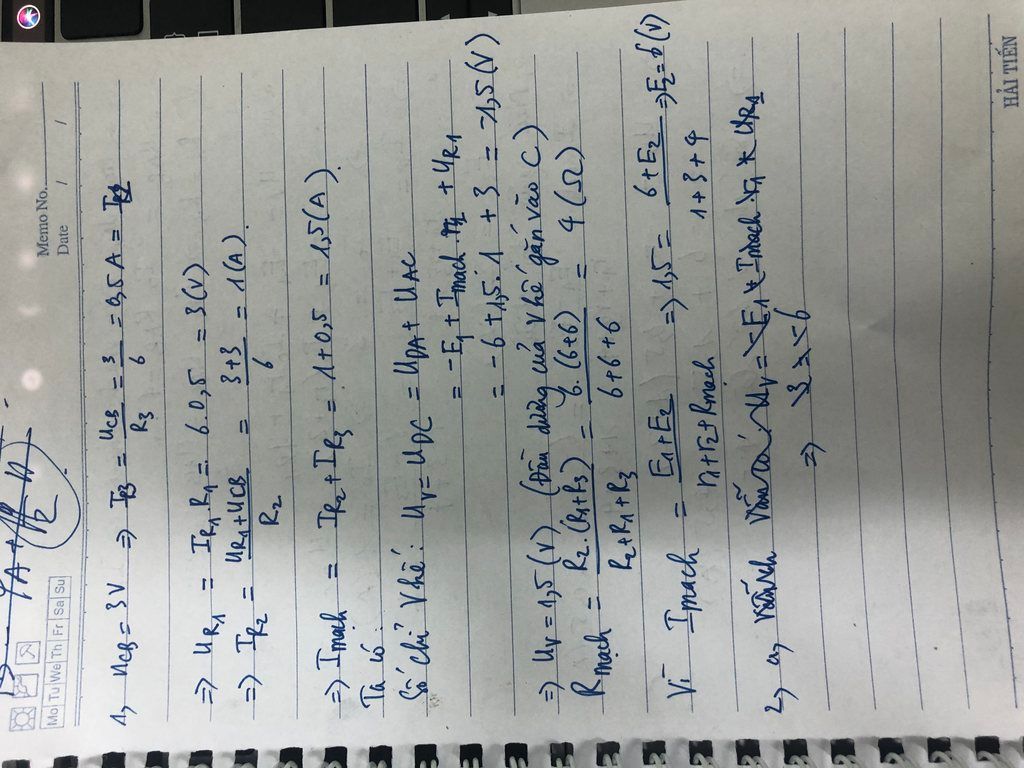 Memo No.
Date / /
Mo Tu We Th Fr Sa Su
1, U_CB = 3V ⇒ I_R3 = U_CB/R_3 = 3/6 = 0,5A = I_R1
⇒ U_R1 = I_R1.R_1 = 6.0,5 = 3(V)
⇒ I_R2 = (U_R1+U_CB)/R_2 = (3+3)/6 = 1(A).
⇒ I_mạch = I_R2 + I_R3 = 1+0,5 = 1,5(A).
Ta có:
Số chỉ V kế: U_V = U_DC = U_DA + U_AC
= -E_1 + I_mạch.r_1 + U_R1
= -6 + 1,5.1 + 3 = -1,5(V)
⇒ U_V = 1,5(V) (Đầu dương của V kế gắn vào C)
R_mạch = R_2.(R_1+R_3)/(R_2+R_1+R_3) = 6.(6+6)/(6+6+6) = 4(Ω)
Vì I_mạch = (E_1+E_2)/(r_1+r_2+R_mạch) ⇒ 1,5 = (6+E_2)/(1+3+4) ⇒ E_2 = 6(V)
2, a, U_V = -E_1 + I_mạch.r_1 + U_R1
⇒ 3 = -6
HẢI TIẾN